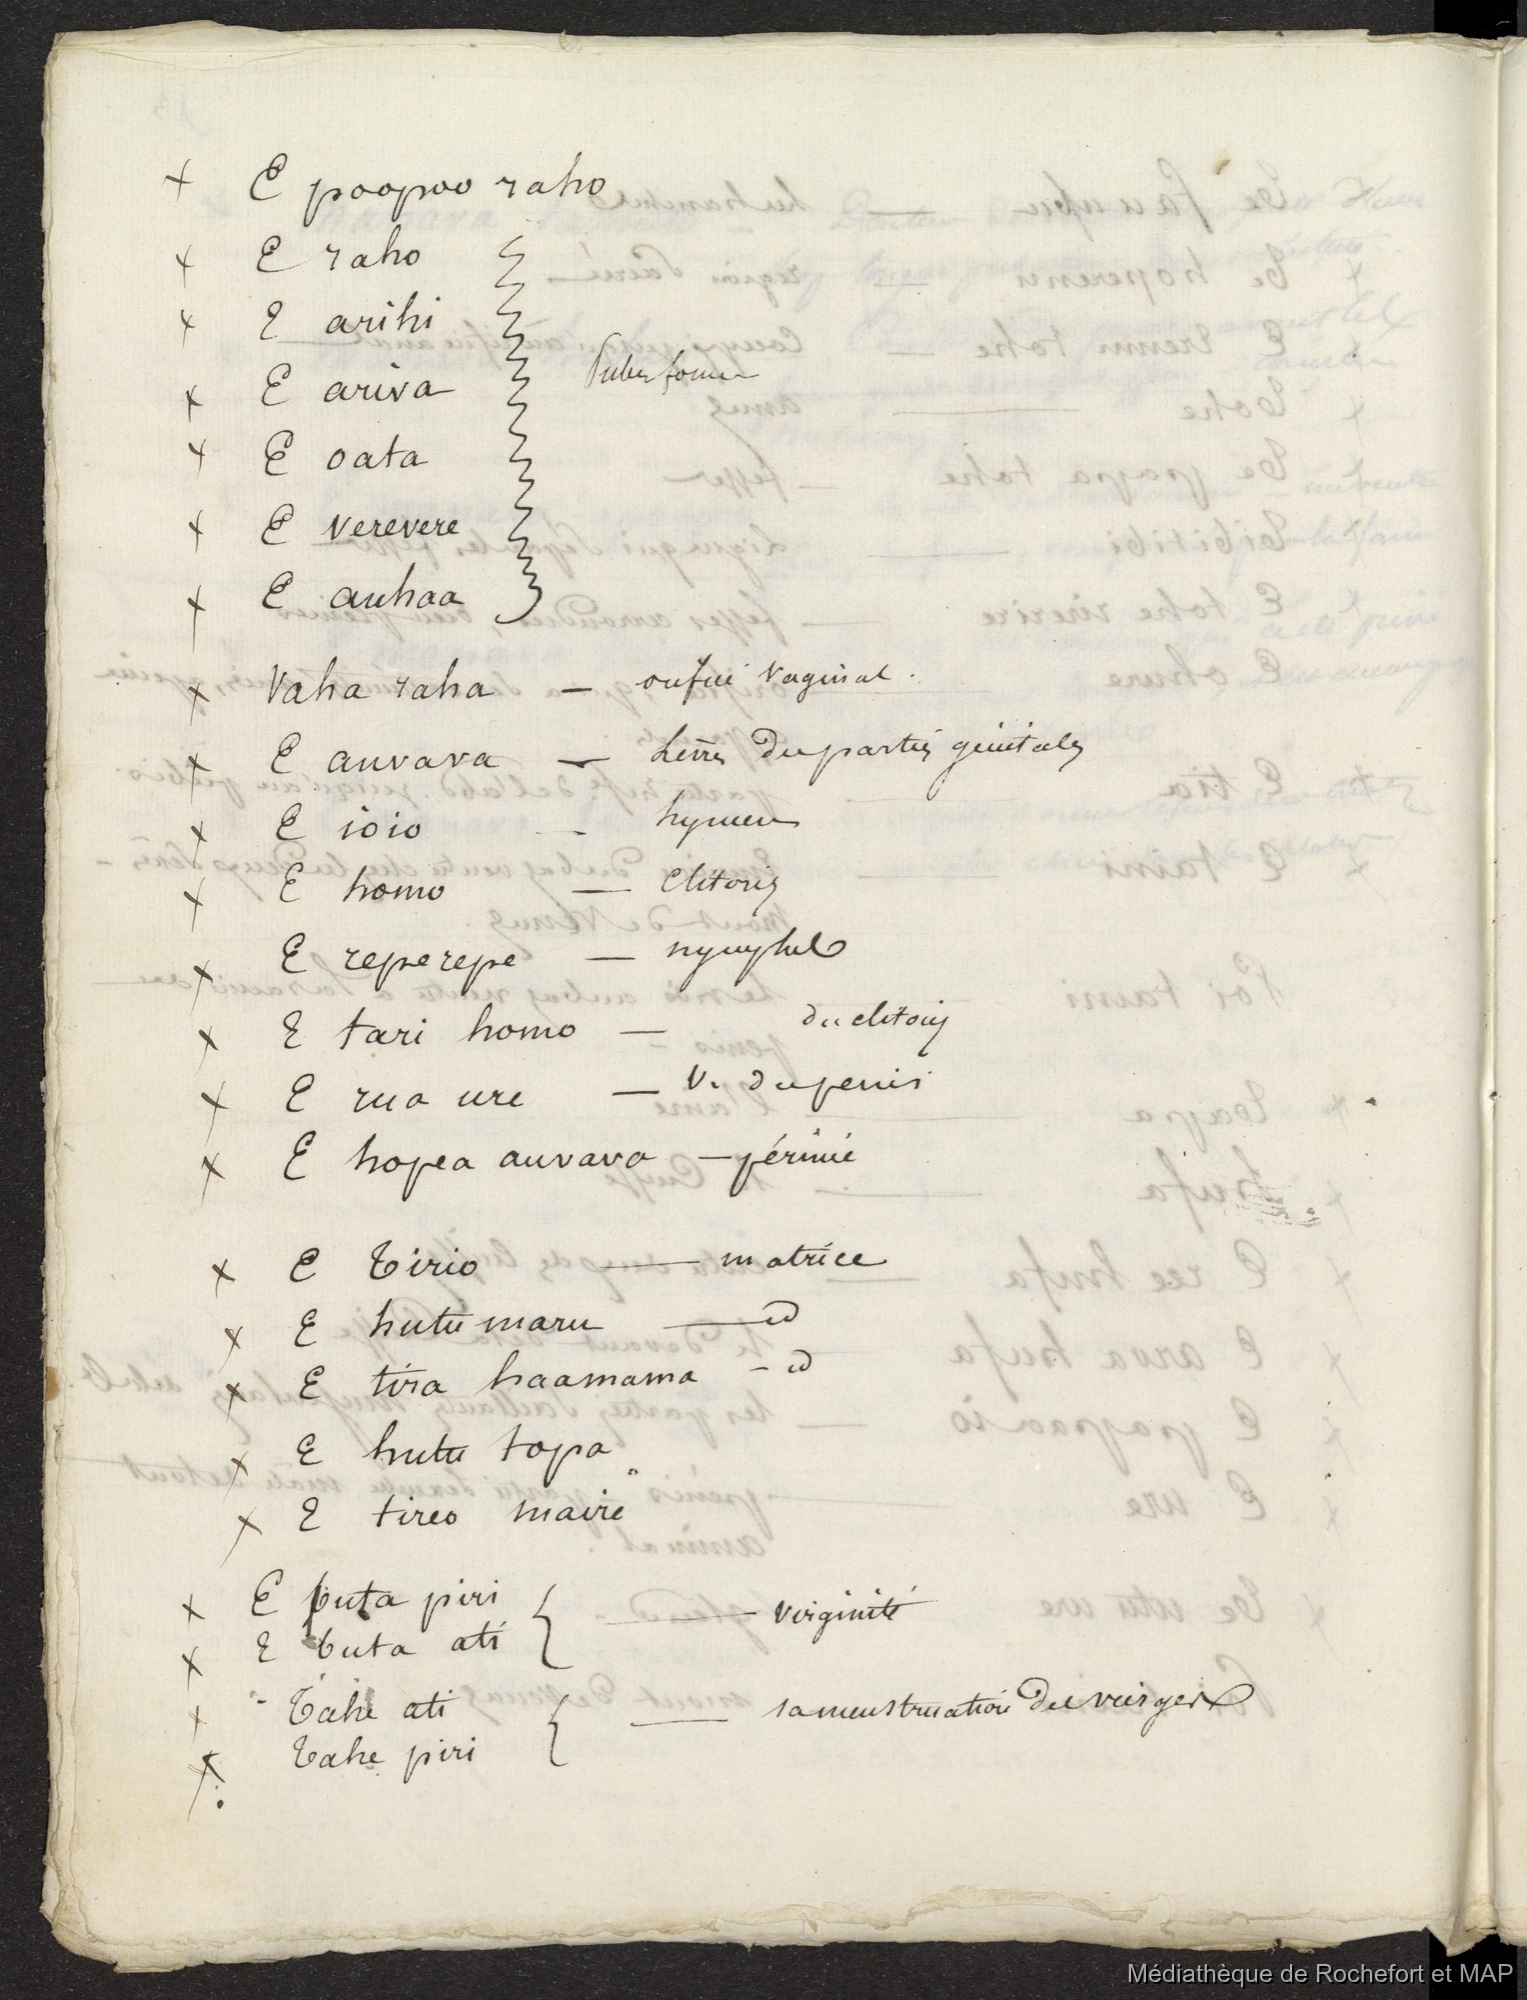 x E poopoo raho
x E raho
x E arihi
x E ariva Pubis femme
x E oata
x E verevere
x E auhaa
x Vaha raha — orifice vaginal.
x E auvava — Lèvres des parties génitales
x E ioio — hymen
x E homo — Clitoris
x E reperepe — nymphes
x E tari homo — du clitoris
x E rua ure — V. du penis
x E hopea auvava — périnée
x E tirio — matrice
x E hutu maru — id
x E tira haamama — id
x E hutu topa
x E tireo maire "
x E puta piri
x E puta ati — virginité
x " Tahe ati
x Tahe piri — la menstruation des vierges
Médiathèque de Rochefort et MAP